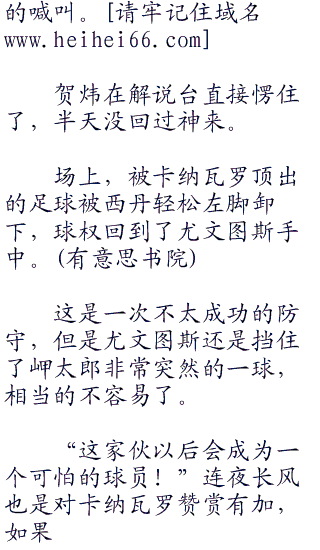 的喊叫。[请牢记住域名
www.heihei66.com]
贺炜在解说台直接愣住
了，半天没回过神来。
场上，被卡纳瓦罗顶出
的足球被西丹轻松左脚卸
下，球权回到了尤文图斯手
中。(有意思书院)
这是一次不太成功的防
守，但是尤文图斯还是挡住
了岬太郎非常突然的一球，
相当的不容易了。
“这家伙以后会成为一
个可怕的球员！”连夜长风
也是对卡纳瓦罗赞赏有加，
如果